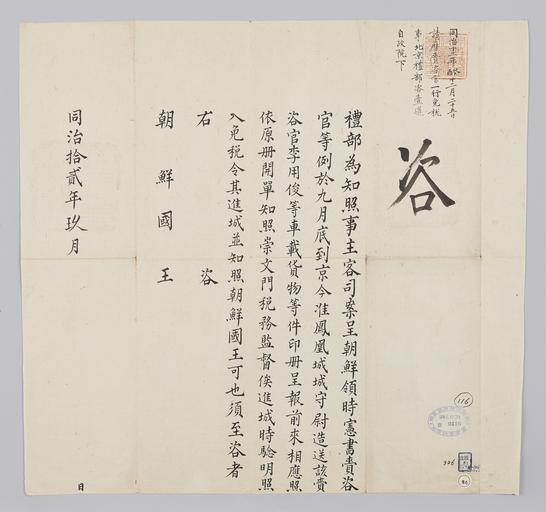 同治十二年癸酉十二月二十五日
齎曆賫咨官一行免税
事北京禮部咨處還
自政院下
咨
禮部為知照事主客司案呈朝鮮領時憲書賫咨
官等例於九月底到京今淮鳳凰城城守尉造送該賫
咨官李用俊等車載貨物等件印册呈報前來相應照
依原册開單知照崇文門税務監督俟進城時驗明照
入免税令其進城並知照朝鮮國王可也須至咨者
右咨
朝鮮國王
同治拾貳年玖月
日
116
306